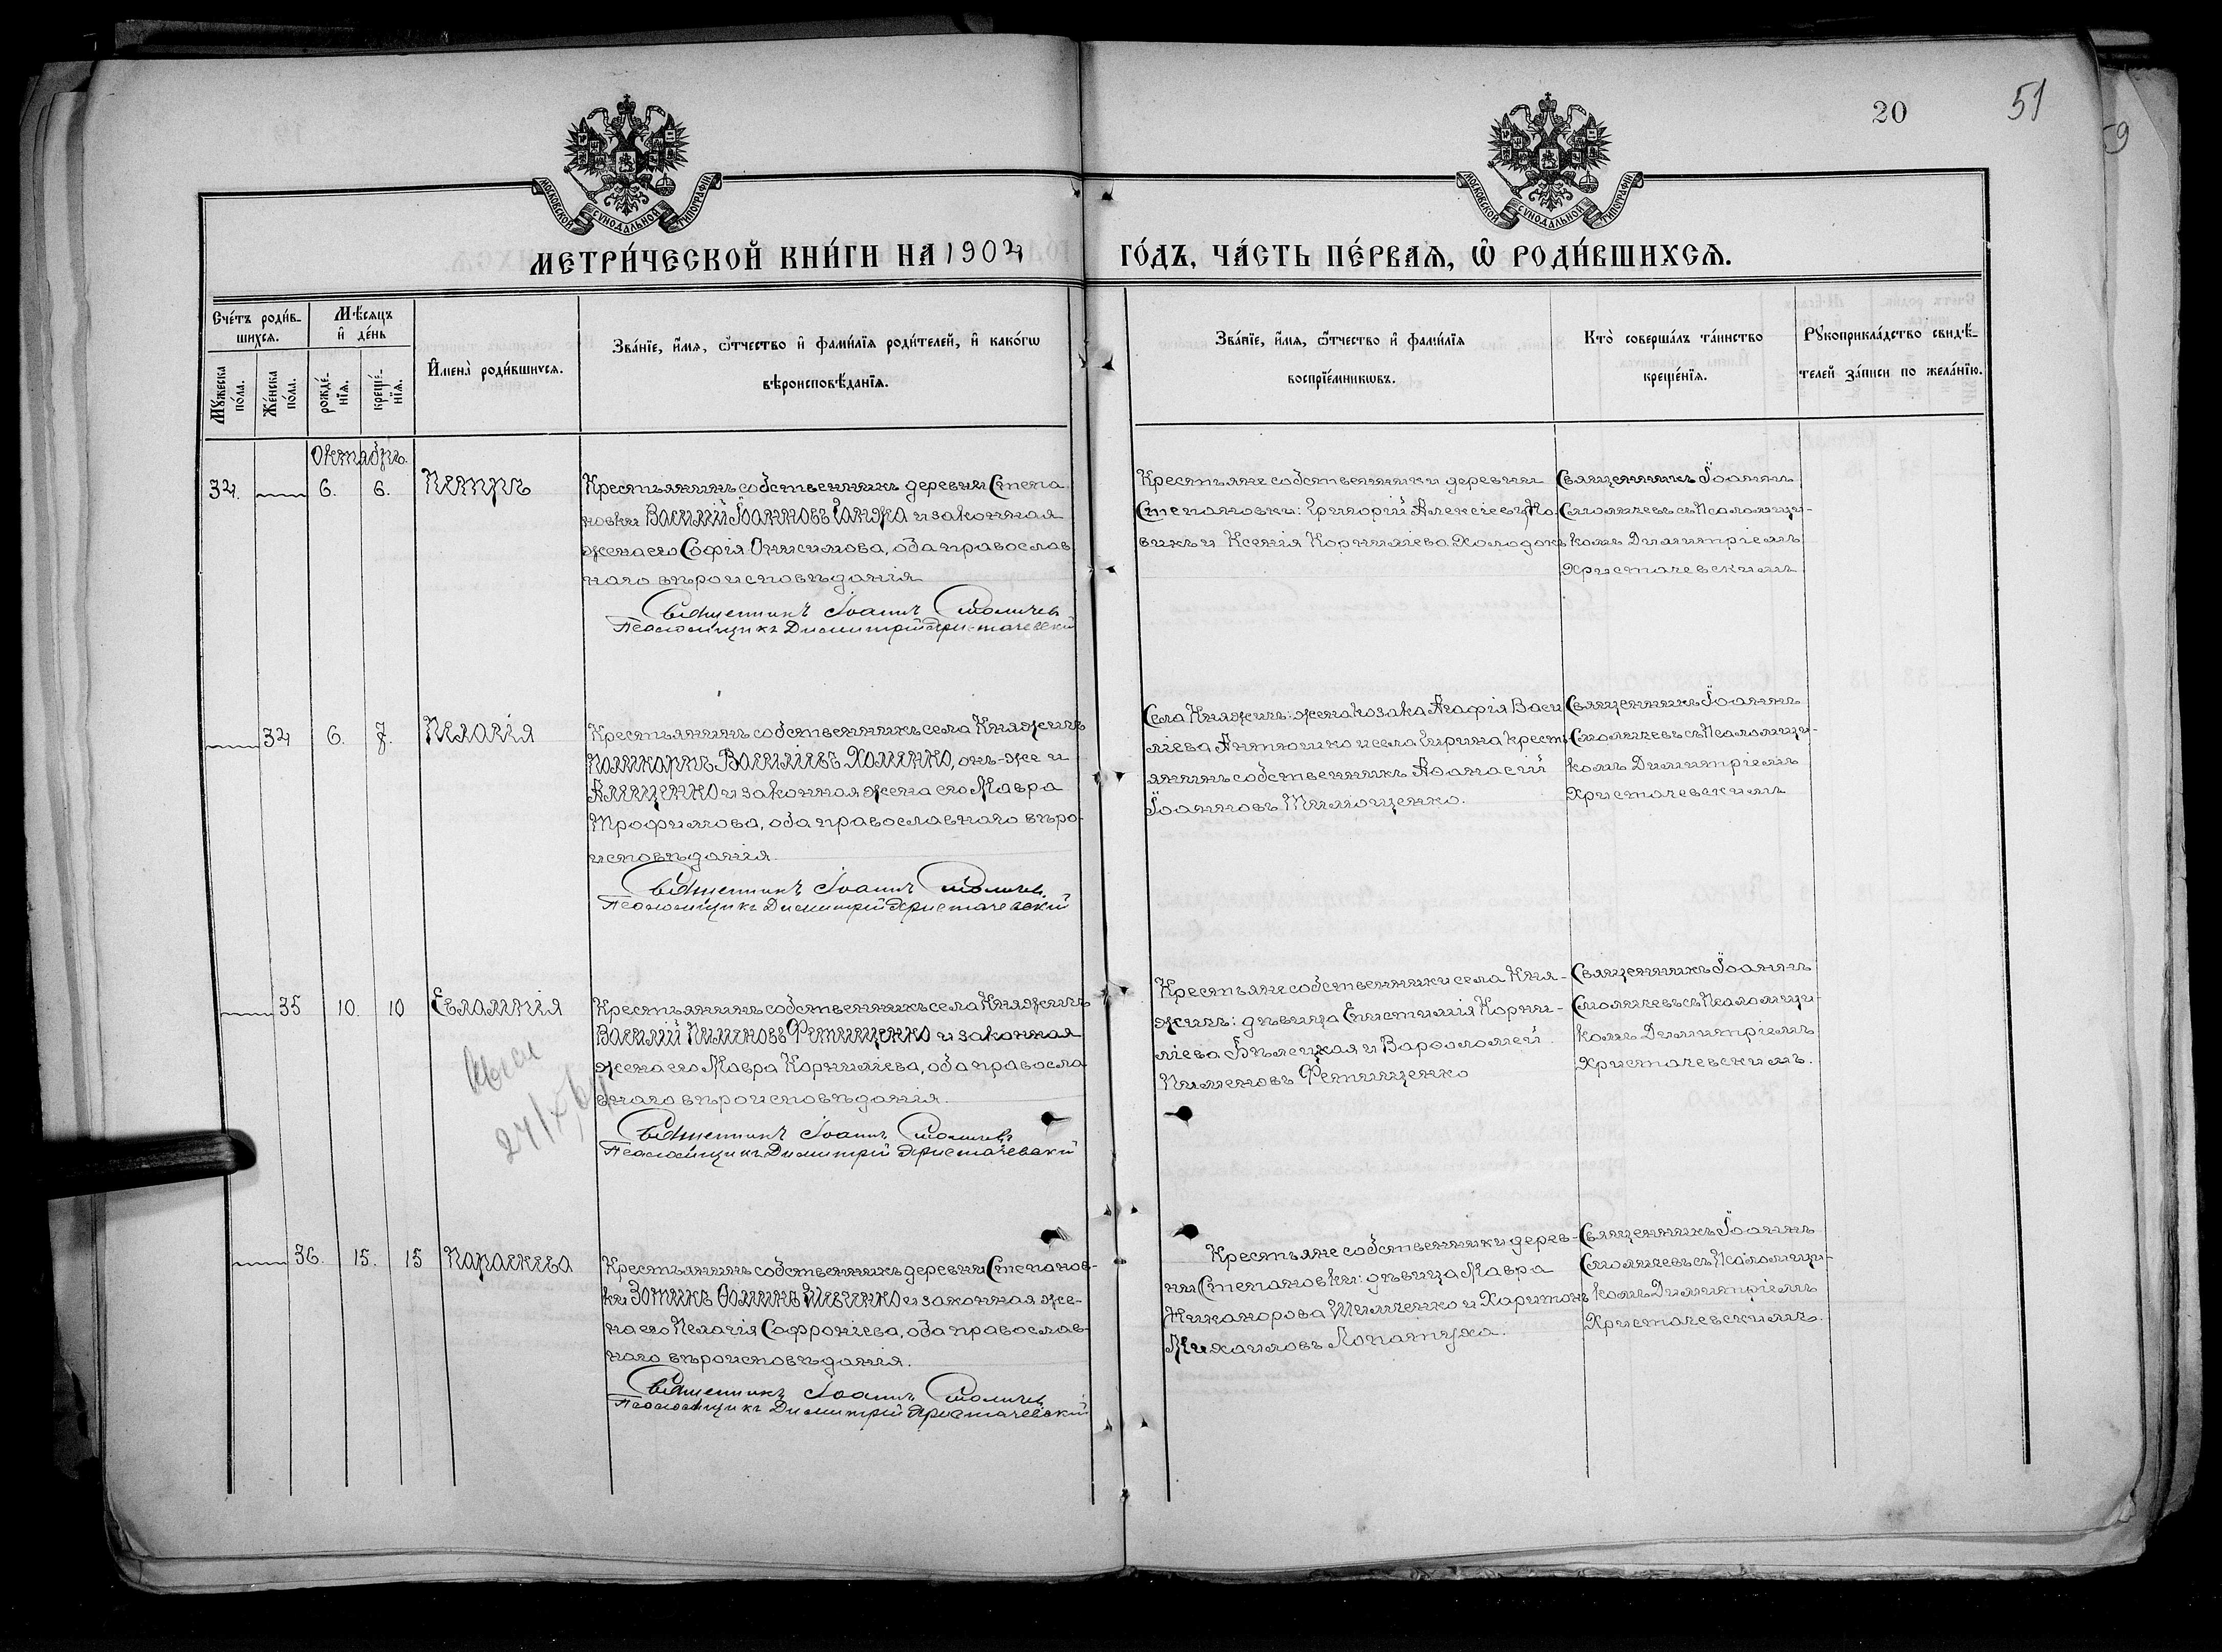 20
51
МОСКОВСКОЙ СѴНОДАЛЬНОЙ ТИПОГРАФІИ
МОСКОВСКОЙ СѴНОДАЛЬНОЙ ТИПОГРАФІИ
МЕТРИ́ЧЕСКОЙ КНИ́ГИ НА 1904 ГО́ДЪ, ЧА́СТЬ ПЕ́РВАѦ, Ѡ҆ РОДИ́ВШИХСѦ.
Сче́тъ роди́в-
шихсѧ.
Мѣ́сѧцъ
и҆ де́нь
Мꙋ́жеска
по́ла.
Же́нска
по́ла.
рожде́-
нїѧ.
креще́-
нїѧ.
И҆мена̀ роди́вшихсѧ.
Зва́нїе, и҆́мѧ, ѻ҆́тчество и҆ фами́лїѧ роди́телей, и҆ како́гѡ
вѣроисповѣ́данїѧ.
Зва́нїе, и҆́мѧ, ѻ҆́тчество и҆ фами́лїѧ
воспрїе́мникѡвъ.
Кто̀ соверша́лъ та́инство
креще́нїѧ.
Рꙋкоприкла́дство свидѣ́-
телей за́писи по жела́нїю.
Октябрь.
34. 6. 6. Петръ
Крестьянинъ собственникъ деревни Степа
новки Василій Іоанновъ Ганжа и законная
жена его Софія Онисимова, оба православ
наго вѣроисповѣданія
Священникъ Іоаннъ Смоличев
Псаломщикъ Димитрій Христачевскій
Крестьяне собственники деревни
Степановки: Григорій Алексіевъ
викъ и Ксенія Корниліева Холодокъ
Священникъ Іоаннъ
Смоличевъ съ Псаломщи-
комъ Димитріемъ
Христачевскимъ
34 6. 7. Пелагія
Крестьянинъ собственникъ села Княжичъ
Поликарпъ Василіевъ Хоменко, онъ-же и
и законная жена его Мавра
Трофимова, оба православнаго вѣро-
исповѣданія.
Священникъ Іоаннъ Смоличев
Псаломщикъ Димитрій Христачевскій
Села Княжичъ: жена козака Агафія Васи
ліева Антюшко и села Гирина кресть
янинъ собственникъ Аѳанасій
Іоанновъ Тимощенко.
Священникъ Іоаннъ
Смоличевъ съ Псаломщи-
комъ Димитріемъ
Христачевскимъ
35 10. 10 Евлампія
Крестьянинъ собственникъ села Княжичъ
Василій Пименовъ Фетищенко и законная
жена его Мавра Корниліева, оба правосла
внаго вѣроисповѣданія.
Священникъ Іоаннъ Смоличевъ
Псаломщикъ Димитрій Христачевскій
Крестьяне собственники села Кня-
жичъ: дѣвица Епистимія Корни-
ліева Бѣлецкая и Варѳоломей
Пименовъ Фетищенко
Священникъ Іоаннъ
Смоличевъ съ Псаломщи-
комъ Димитріемъ
Христачевскимъ.
36. 15. 15 Параскева
Крестьянинъ собственникъ деревни Степанов-
ки Зотикъ Ѳоминъ Шевченко и законная же-
на его Пелагія Софроніева, оба православ-
наго вѣроисповѣданія.
Священникъ Іоаннъ Смоличев
Псаломщикъ Димитрій Христачевскій
Крестьяне собственники дерев-
ни Степановки: дѣвица Мавра
Никанорова Шевченко и Харитонъ
Михаиловъ Лопатуха.
Священникъ Іоаннъ
Смоличевъ съ Псаломщи-
комъ Димитріемъ
Христачевскимъ.